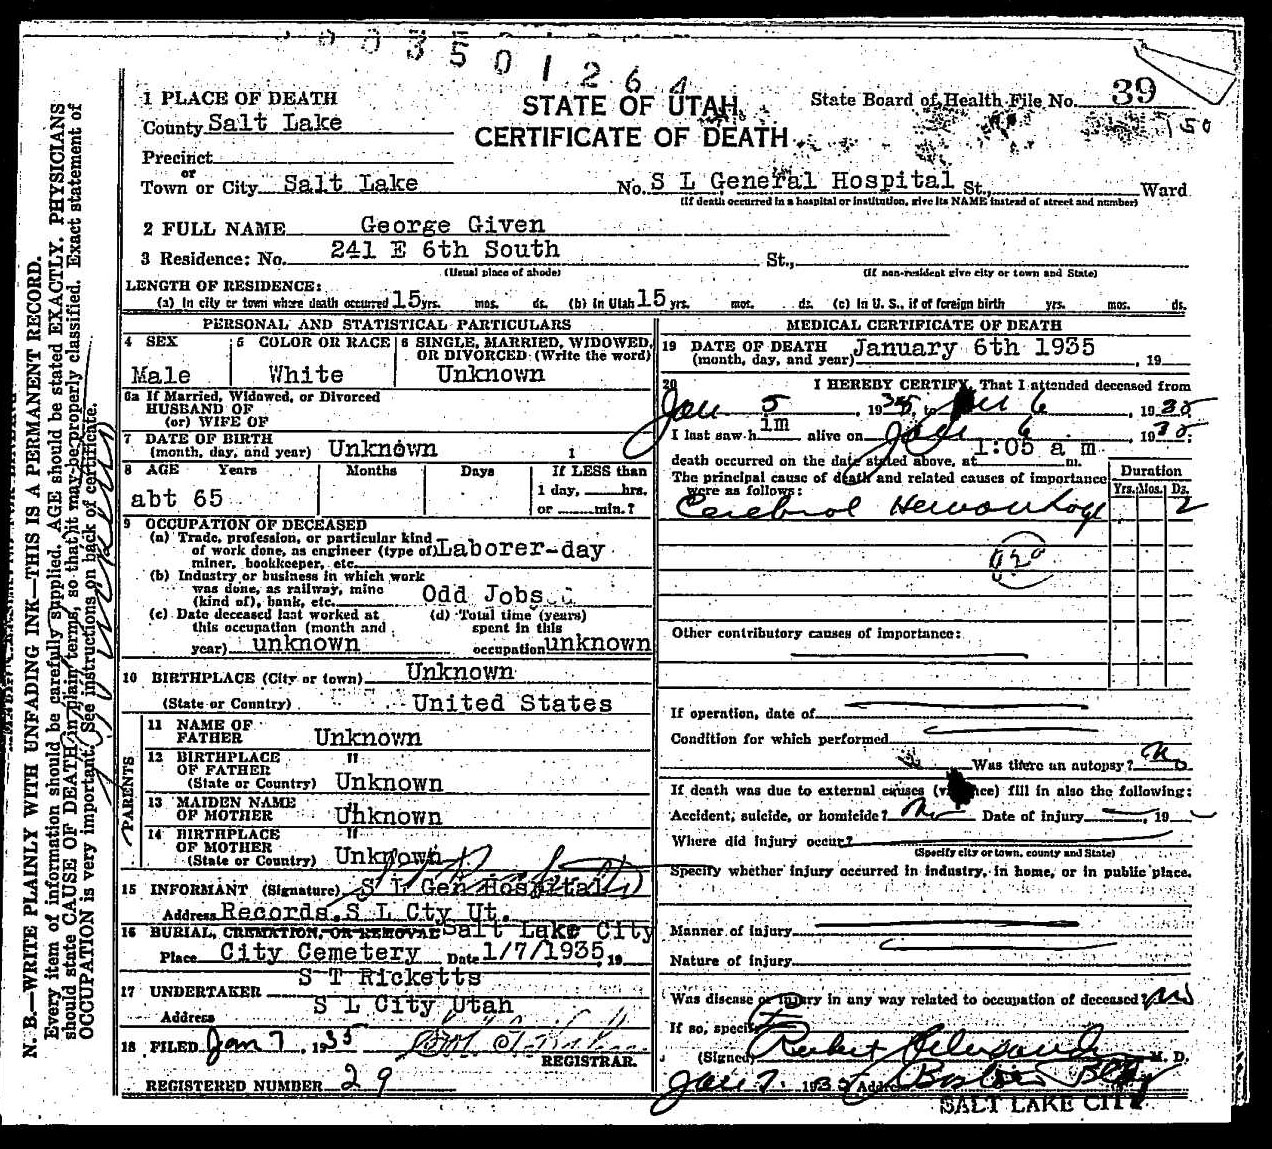 3501264
1 PLACE OF DEATH
County Salt Lake
Precinct
or
Town or City Salt Lake
STATE OF UTAH
CERTIFICATE OF DEATH
State Board of Health File No. 39
No. S L General Hospital St., Ward
(If death occurred in a hospital or institution, give its NAME instead of street and number)
2 FULL NAME George Given
3 Residence: No. 241 E 6th South St.,
(Usual place of abode) (If non-resident give city or town and State)
LENGTH OF RESIDENCE:
(a) In city or town where death occurred 15 yrs. mos. ds. (b) In Utah 15 yrs. mos. ds. (c) In U. S., if of foreign birth yrs. mos. ds.
PERSONAL AND STATISTICAL PARTICULARS
4 SEX
Male
5 COLOR OR RACE
White
6 SINGLE, MARRIED, WIDOWED,
OR DIVORCED (Write the word)
Unknown
6a If Married, Widowed, or Divorced
HUSBAND OF
(or) WIFE OF
7 DATE OF BIRTH
(month, day, and year) Unknown 1
8 AGE Years Months Days If LESS than
1 day, hrs.
or min.?
abt 65
9 OCCUPATION OF DECEASED
(a) Trade, profession, or particular kind
of work done, as engineer (type of) Laborer-day
miner, bookkeeper, etc.
(b) Industry or business in which work
was done, as railway, mine
(kind of), bank, etc. Odd Jobs
(c) Date deceased last worked at
this occupation (month and
year) unknown
(d) Total time (years)
spent in this
occupation unknown
10 BIRTHPLACE (City or town) Unknown
(State or Country) United States
PARENTS
11 NAME OF
FATHER Unknown
12 BIRTHPLACE "
OF FATHER
(State or Country) Unknown
13 MAIDEN NAME "
OF MOTHER Unknown
14 BIRTHPLACE "
OF MOTHER
(State or Country) Unknown
15 INFORMANT (Signature) S L Gen Hospital
Address Records. S L Cty Ut.
16 BURIAL, CREMATION, OR REMOVAL Salt Lake City
Place City Cemetery Date 1/7/1935, 19
S T Ricketts
17 UNDERTAKER
S L City Utah
Address
18 FILED Jan 7, 1935
REGISTRAR.
REGISTERED NUMBER 29
MEDICAL CERTIFICATE OF DEATH
19 DATE OF DEATH January 6th 1935
(month, day, and year) , 19
20 I HEREBY CERTIFY, That I attended deceased from
Jan 5, 1935, to Jan 6, 1935
I last saw him alive on Jan 6, 1935;
1:05 a m
death occurred on the date stated above, at m.
The principal cause of death and related causes of importance
were as follows:
Duration
Yrs. Mos. Ds.
Cerebral Hemorrhage 2
82a
Other contributory causes of importance:
If operation, date of
Condition for which performed
Was there an autopsy? No
If death was due to external causes (violence) fill in also the following:
Accident, suicide, or homicide? No Date of injury , 19
Where did injury occur?
(Specify city or town, county and State)
Specify whether injury occurred in industry, in home, or in public place.
Manner of injury
Nature of injury
Was disease or injury in any way related to occupation of deceased? No
If so, specify
(Signed) Robert M. D.
Jan 7. 1935 Address Boston Bldg
SALT LAKE CITY
N. B.—WRITE PLAINLY WITH UNFADING INK—THIS IS A PERMANENT RECORD.
Every item of information should be carefully supplied. AGE should be stated EXACTLY. PHYSICIANS
should state CAUSE OF DEATH in plain terms, so that it may be properly classified. Exact statement of
OCCUPATION is very important. See instructions on back of certificate.